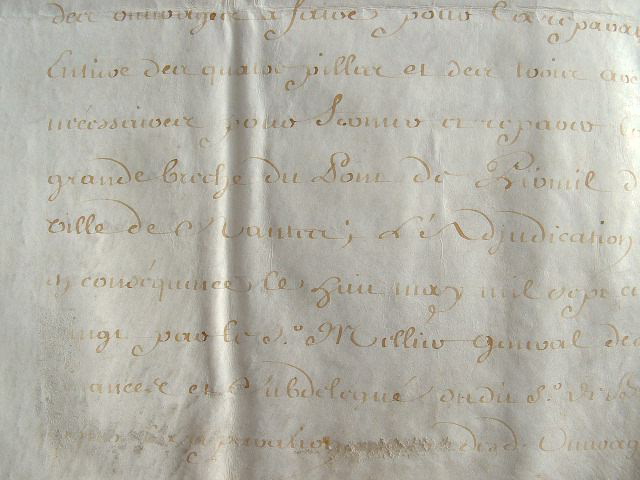 des ouvrages a faire pour la repara
Entiere des quatre pilles et des trois arc
necessaires pour fermer et reparer la
grande breche du Pont de Pirmil d
ville de Nantes; L'Adjudication
en consequence le huit may mil sept c
vingt par le S.r Mellier general des
ances et Subdelegué dudit S.r
reparation desd. Ouvrag